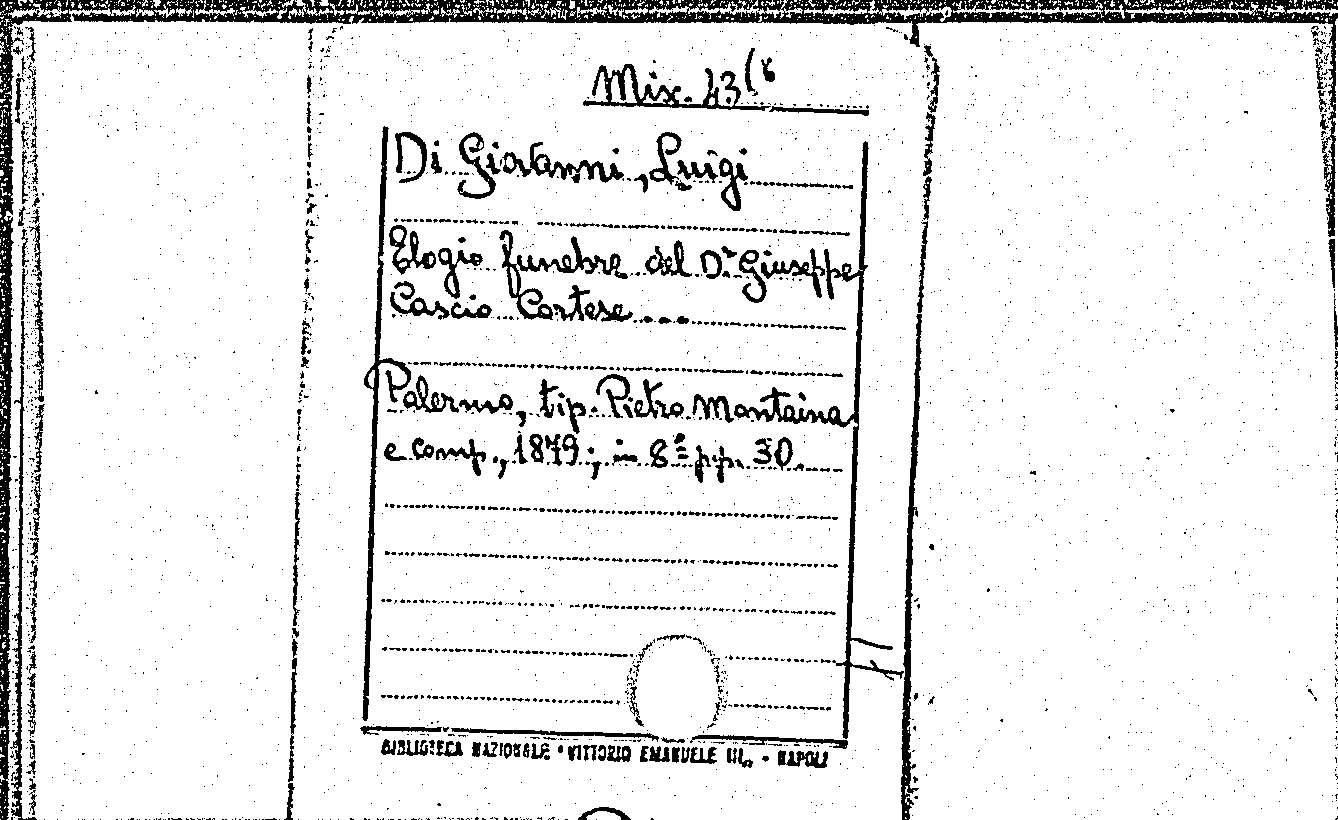 Mix. 43(8
Di Giovanni, Luigi
Elogio funebre del Dr. Giuseppe
Cascio Cortese...
Palermo, tip. Pietro Montaina
e comp., 1879; in 8º pp. 30.
BIBLIOTECA NAZIONALE "VITTORIO EMANUELE III" - NAPOLI